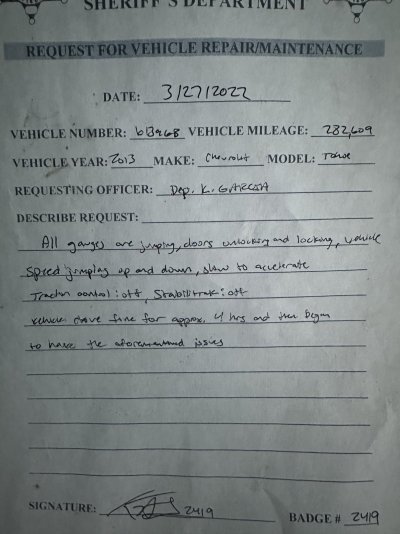 SHERIFF'S DEPARTMENT
REQUEST FOR VEHICLE REPAIR/MAINTENANCE
DATE: 3/27/2022
VEHICLE NUMBER: 613968 VEHICLE MILEAGE: 282,609
VEHICLE YEAR: 2013 MAKE: Chevrolet MODEL: Tahoe
REQUESTING OFFICER: Dep. K. GARCIA
DESCRIBE REQUEST:
All gauges are jumping, doors unlocking and locking, vehicle
speed jumping up and down, slow to accelerate
Traction control: off, Stabilitrak: off
vehicle drove fine for approx. 4 hrs and then began
to have the aforementioned issues
SIGNATURE: 2419
BADGE # 2419